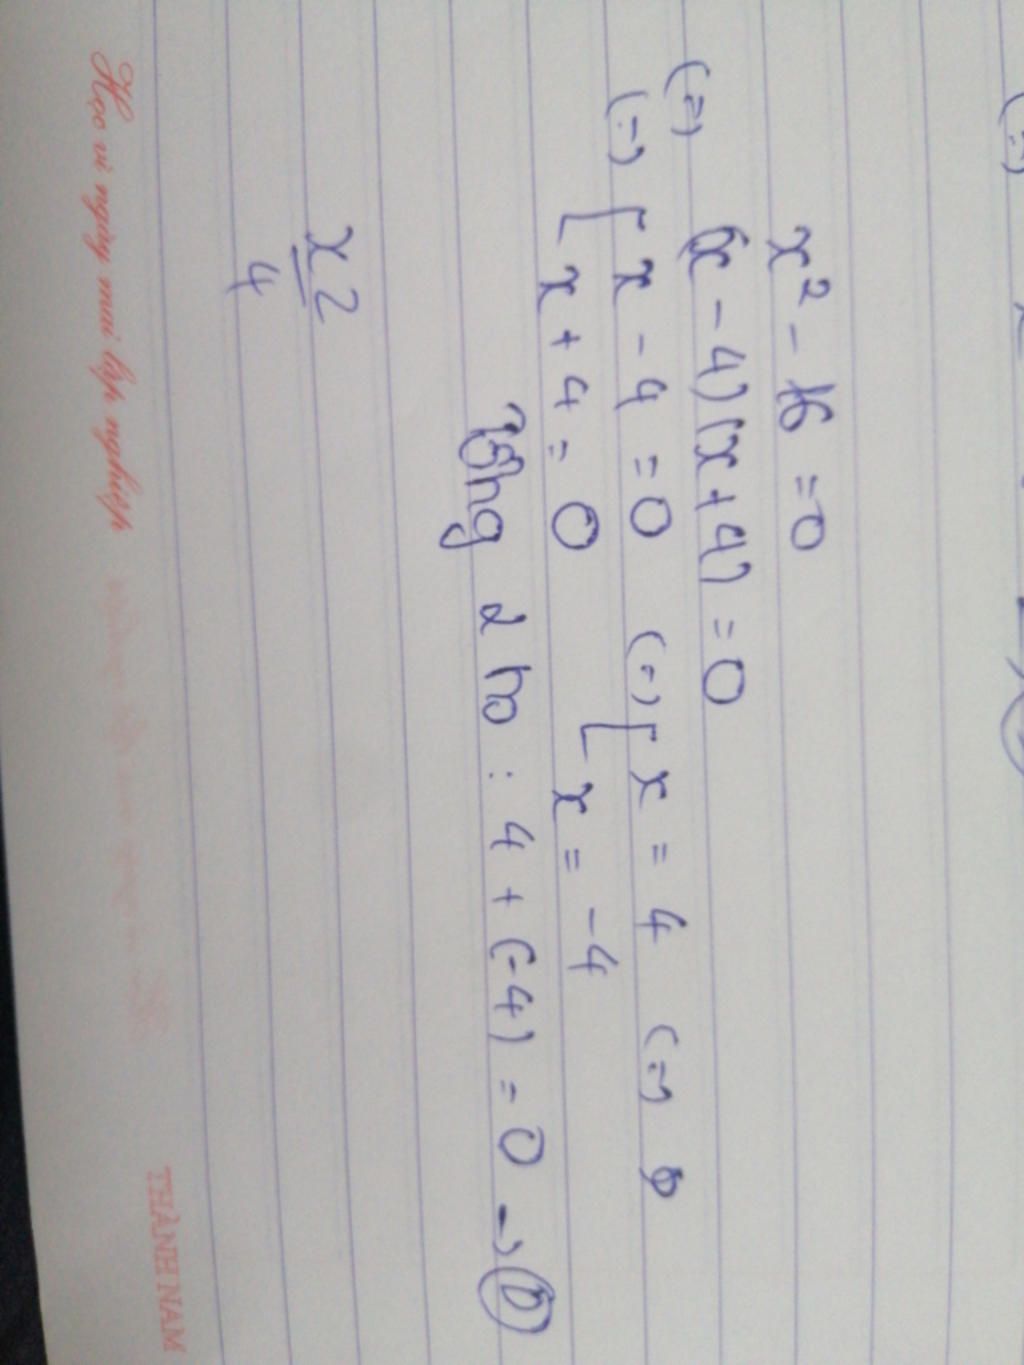 x² - 16 = 0
(=) (x - 4)(x + 4) = 0
(=) [ x - 4 = 0 (=) [ x = 4 (=)
x + 4 = 0 x = -4
Tổng 2 no : 4 + (-4) = 0 → D
x 2
4
Học vì ngày mai lập nghiệp
THÀNH NAM